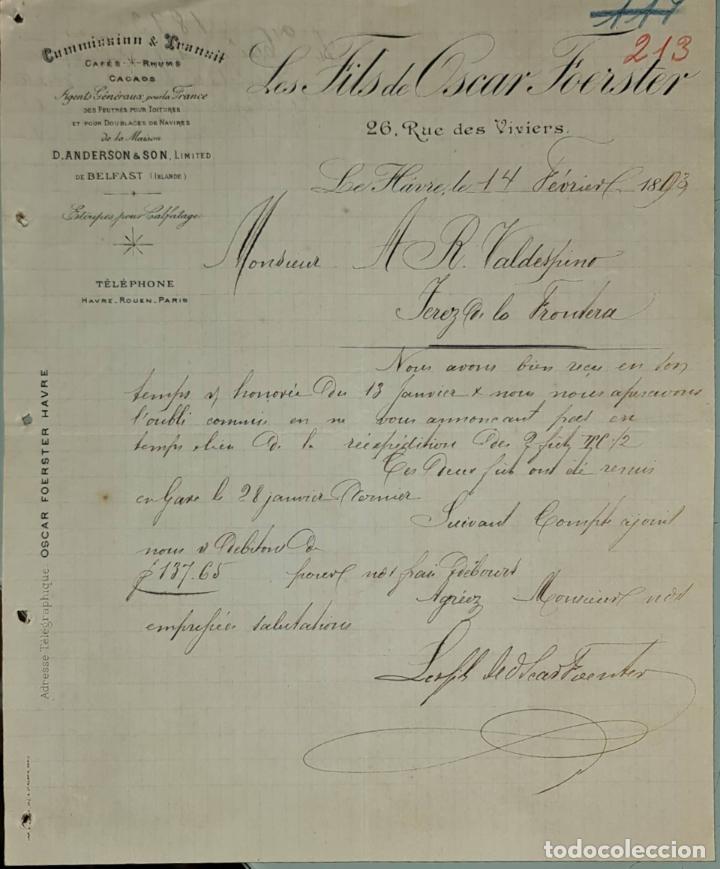 117
213
Commission & Transit
CAFÉS - RHUMS
CACAOS
Agents Généraux pour la France
DES FEUTRES POUR TOITURES
ET POUR DOUBLAGES DE NAVIRES
de la Maison
D. ANDERSON & SON, LIMITED
DE BELFAST (IRLANDE)
Etoupes pour Calfatage
TÉLÉPHONE
HAVRE_ROUEN_PARIS
Les Fils de Oscar Foerster
26, Rue des Viviers.
Le Hâvre, le 14 Février 1893
Monsieur A R. Valdespino
Jerez de la Frontera
Nous avons bien reçu en son
temps v/ honorée du 13 janvier & nous nous apercevons
l'oubli commis en ne vous annonçant pas en
temps & lieu de la réexpédition des 2 fûts 1/2
Ces deux fûts ont été remis
en Gare le 28 janvier dernier
Suivant Compte ajoint
nous v/ debitons de
f 137.65 pour nos frais & débours
Agréez Monsieur nos
empressées salutations
Les fils de Oscar Foerster
Adresse Télégraphique: OSCAR FOERSTER HAVRE
todocoleccion